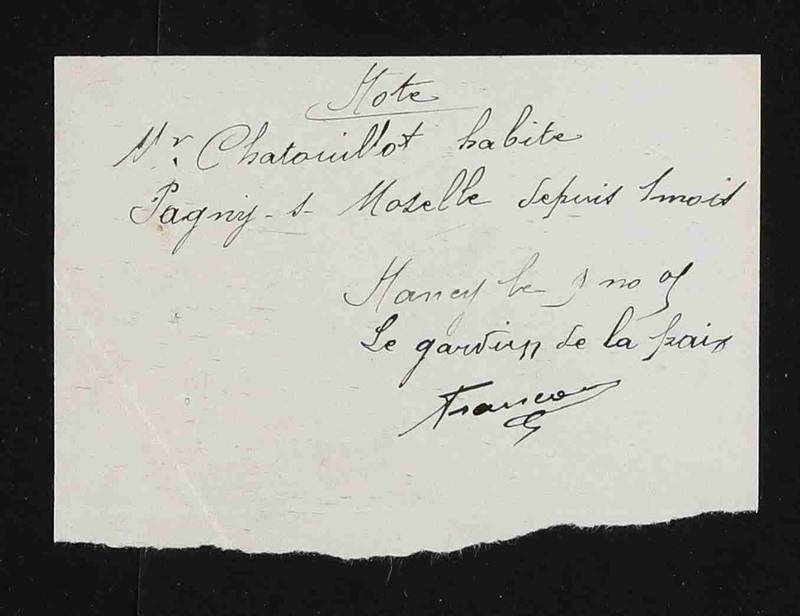 Note
Mr. Chatouillot habite
Pagny-s-Moselle depuis 1 mois
Nancy le 9 no
Le gardien de la paix